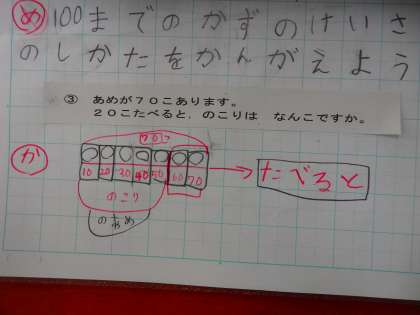 め 100までのかずのけいさ
のしかたをかんがえよう
③ あめが70こあります。
20こたべると、のこりは なんこですか。
か
70こ
10 20 30 40 50 60 70
たべると
のこり